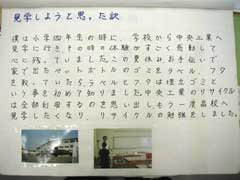 見学しようと思った訳
僕は小学四年生の時に、学校から中央工業へ
見学に行きその時の体験がすごく感動して
心に残っていました。この夏休みお手伝いで
家で出たペットボトルのゴミをラベル、フタ
を取っていたら、ラベルとフタは埋立ゴミと
いう事を初めて知りました。中央工業のリサイクル
は全部利用するのを思い出しもう一度高校へ
見学したくなり、リサイクルの勉強をしました。